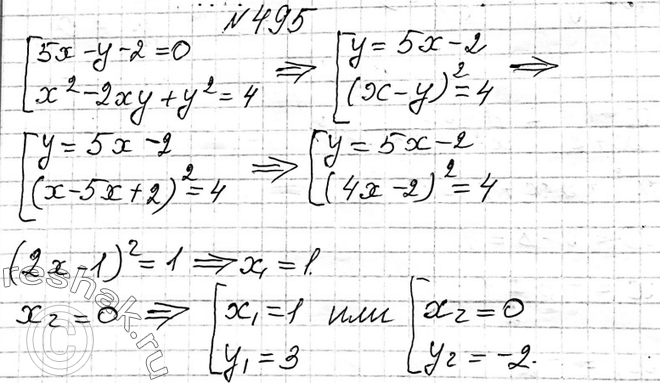 №495
[5x-y-2=0
[x²-2xy+y²=4 ⇒ [y=5x-2
[(x-y)²=4 ⇒
[y=5x-2
[(x-5x+2)²=4 ⇒ [y=5x-2
[(4x-2)²=4
(2x-1)²=1 ⇒ x₁=1.
x₂=0 ⇒ [x₁=1
[y₁=3 или [x₂=0
[y₂=-2.
reshak.ru